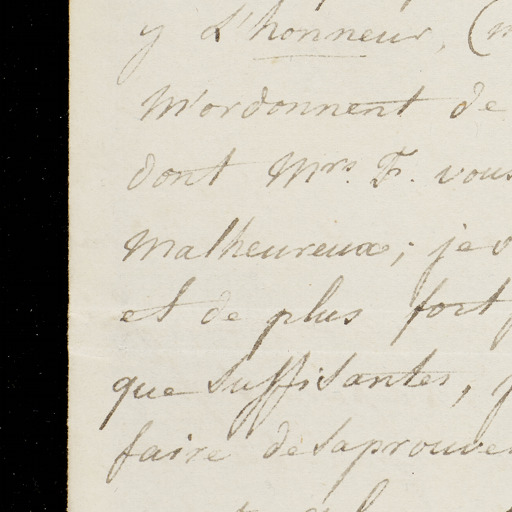 y L'honneur, (
M'ordonnent de
dont Mrs. F. vous
Malheureux; je
et de plus fort
que suffisantes,
faire desaprouver